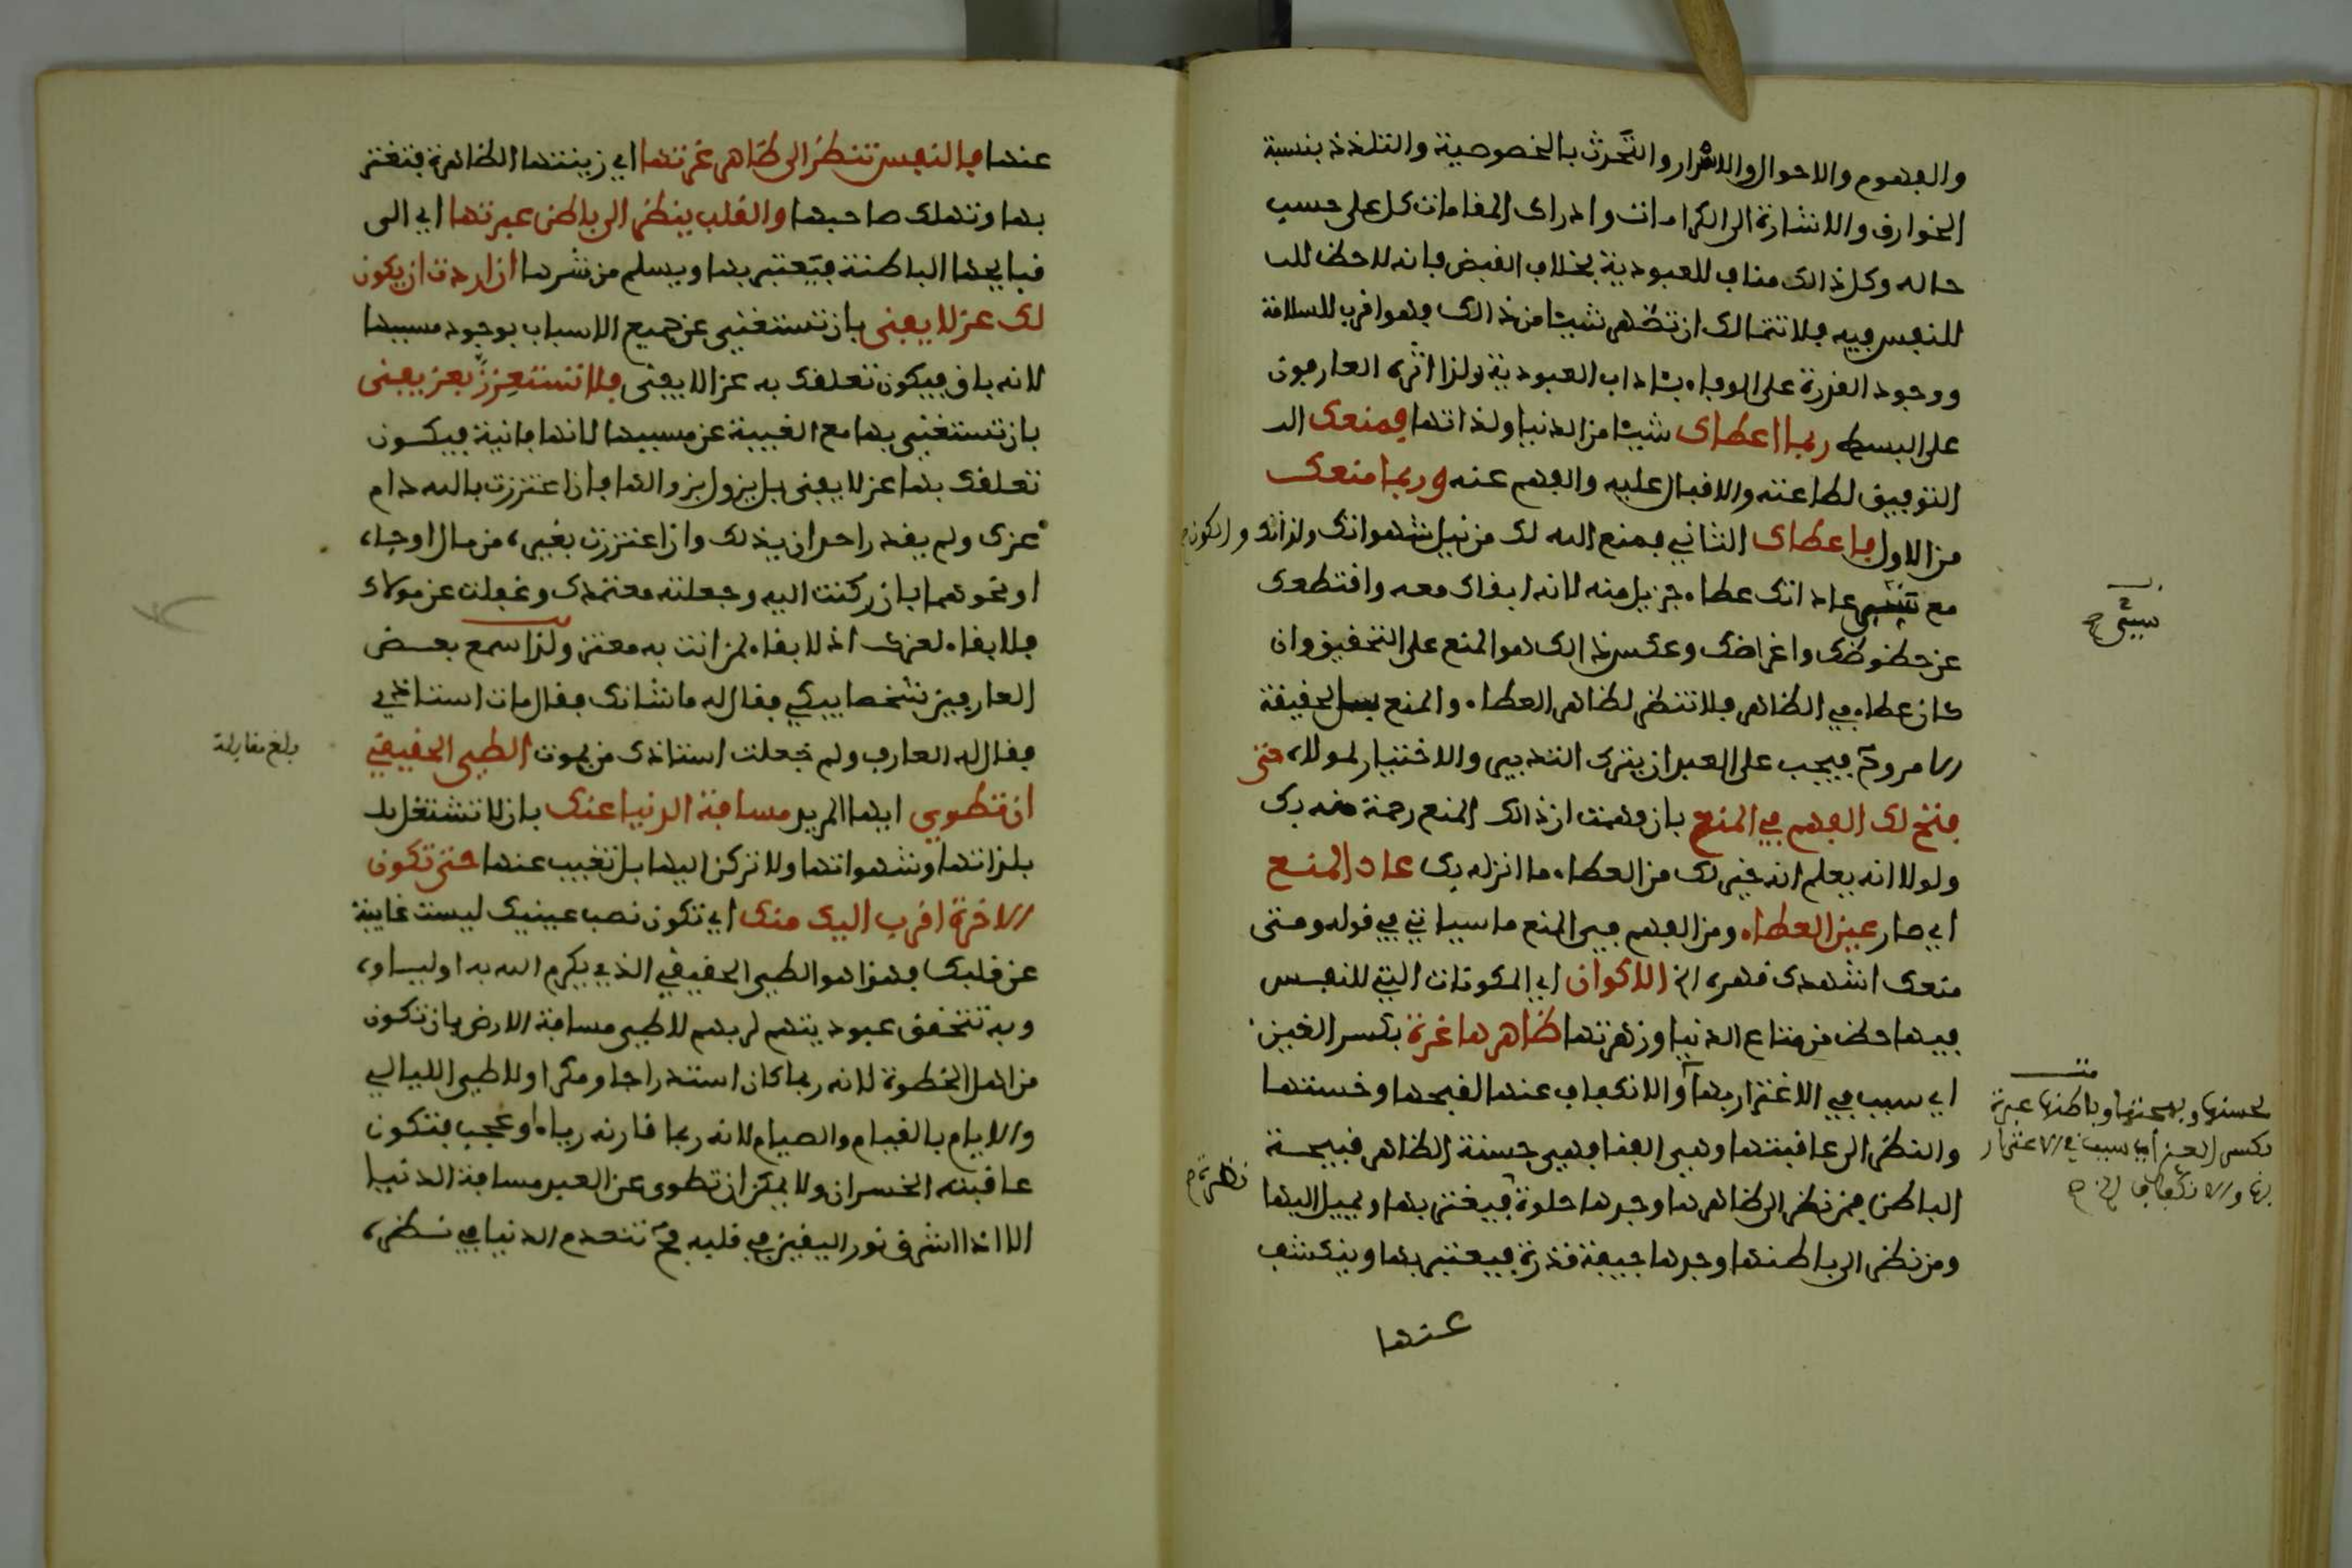 والفهوم والاحوال والاسرار والتحدث بالخصوصية والتلذذ بنسبة
الخوارق والاشارة الى الكرامات وادراك المقامات كل على حسب
حاله وكل ذالك مناف للعبودية بخلاف القبض فانه لاحظ
للنفس فيه فلا تتمالك ان تظهر شيئا من ذالك فهو اقرب للسلامة
ووجود القدرة على الوفاء بئاداب العبودية ولذا اثره العارفون
على البسط ربما اعطاك شيئا من الدنيا ولذاتها فمنعك
التوفيق لطاعته والاقبال عليه والفهم عنه وربما منعك
من الاول فاعطاك الثاني فمنع الله لك من نيل شهواتك ولذاتك والكون
مع عاداتك عطاء جزيل منه لانه ابقاك معه واقتطعك
عن حظوظك واغراضك وعكس ذالك هو المنع على التحقيق وان
كان عطاء في الظاهر فلا تنظر لظاهر العطاء والمنع لحقيقة
الامر وح فيجب على العبد ان يترك التدبير والاختيار لمولاه متى
فتح لك الفهم في المنع بان فهمت ان ذالك المنع رحمة منه بك
ولولا انه يعلم انه خير لك من العطاء ما انزله بك عاد المنع
اي صار عين العطاء ومن الفهم في المنع ما سياتي في قوله ومتى
منعك اشهدك قهره الخ الاكوان اي المكونات التي للنفس
فيها حظ من متاع الدنيا وزهرتها ظاهرها غرة بكسر الغين
اي سبب في الاغترار بها والانكفاف عنها لقبحها وخستها
والنظر الى عاقبتها وهي الفنا فهي حسنة الظاهر قبيحة
الباطن فمن نظر الى ظاهرها وجدها حلوة فيغتر بها ويميل اليها
ومن نظر الى باطنها وجدها جيفة قذرة فيعتبر بها وينكشف
عنها
سيئ ح
لحسنها وبهجتها وباطنها عبرة
بكسر العين اي سبب في الاعتبار
بها والانكفاف الخ ح
نظرة ح
عنها فالنفس تنظر الى ظاهر غرتها اي زينتها الظاهرة فتغتر
بها وتهلك صاحبها والقلب ينظر الى باطن عبرتها اي الى
قبايحها الباطنة فيعتبر بها ويسلم من شرها ان اردت ان يكون
لك عز لا يفنى بان تستغني عن جميع الاسباب بوجود مسببها
لانه باق فيكون تعلقك به عز الا يفنى فلا تستعززن بعز يفنى
بان تستغني بها مع الغيبة عن مسببها لانها فانية فيكون
تعلقك بها عز لا يبقى بل يزول بزوالها فان اعتززت بالله دام
عزك ولم يقدر احد ان يذلك وان اعتززت بغيره من مال او جاه
او نحوهما بان ركنت اليه وجعلته معتمدك وغفلت عن مولاك
فلا بقاء لعزك اذ لا بقاء لمن انت به معتز ولذا سمع بعض
العارفين شخصا يبكي فقال له ما شانك فقال مات استاذي
فقال له العارف ولم جعلت استاذك من يموت الطي الحقيقي
ان تطوي ايها المريد مسافة الدنيا عنك بان لا تشتغل
بلذاتها وشهواتها ولا تركن اليها بل تغيب عنها حتى تكون
الاخرة اقرب اليك منك اي تكون نصب عينيك ليست غايبة
عن قلبك فهذا هو الطي الحقيقي الذي يكرم الله به اولياءه
وبه تتحقق عبوديتهم لربهم لا طي مسافة الارض بان تكون
من اهل الخطوة لانه ربما كان استدراجا ومكرا ولا طي الليالي
والايام بالقيام والصيام لانه ربما قارنه رياء او عجب فتكون
عاقبته الخسران ولا يمكن ان تطوى عن العبد مسافة الدنيا
الا اذا اشرق نور اليقين في قلبه فح تنعدم الدنيا في نظره
بلغ مقابلة